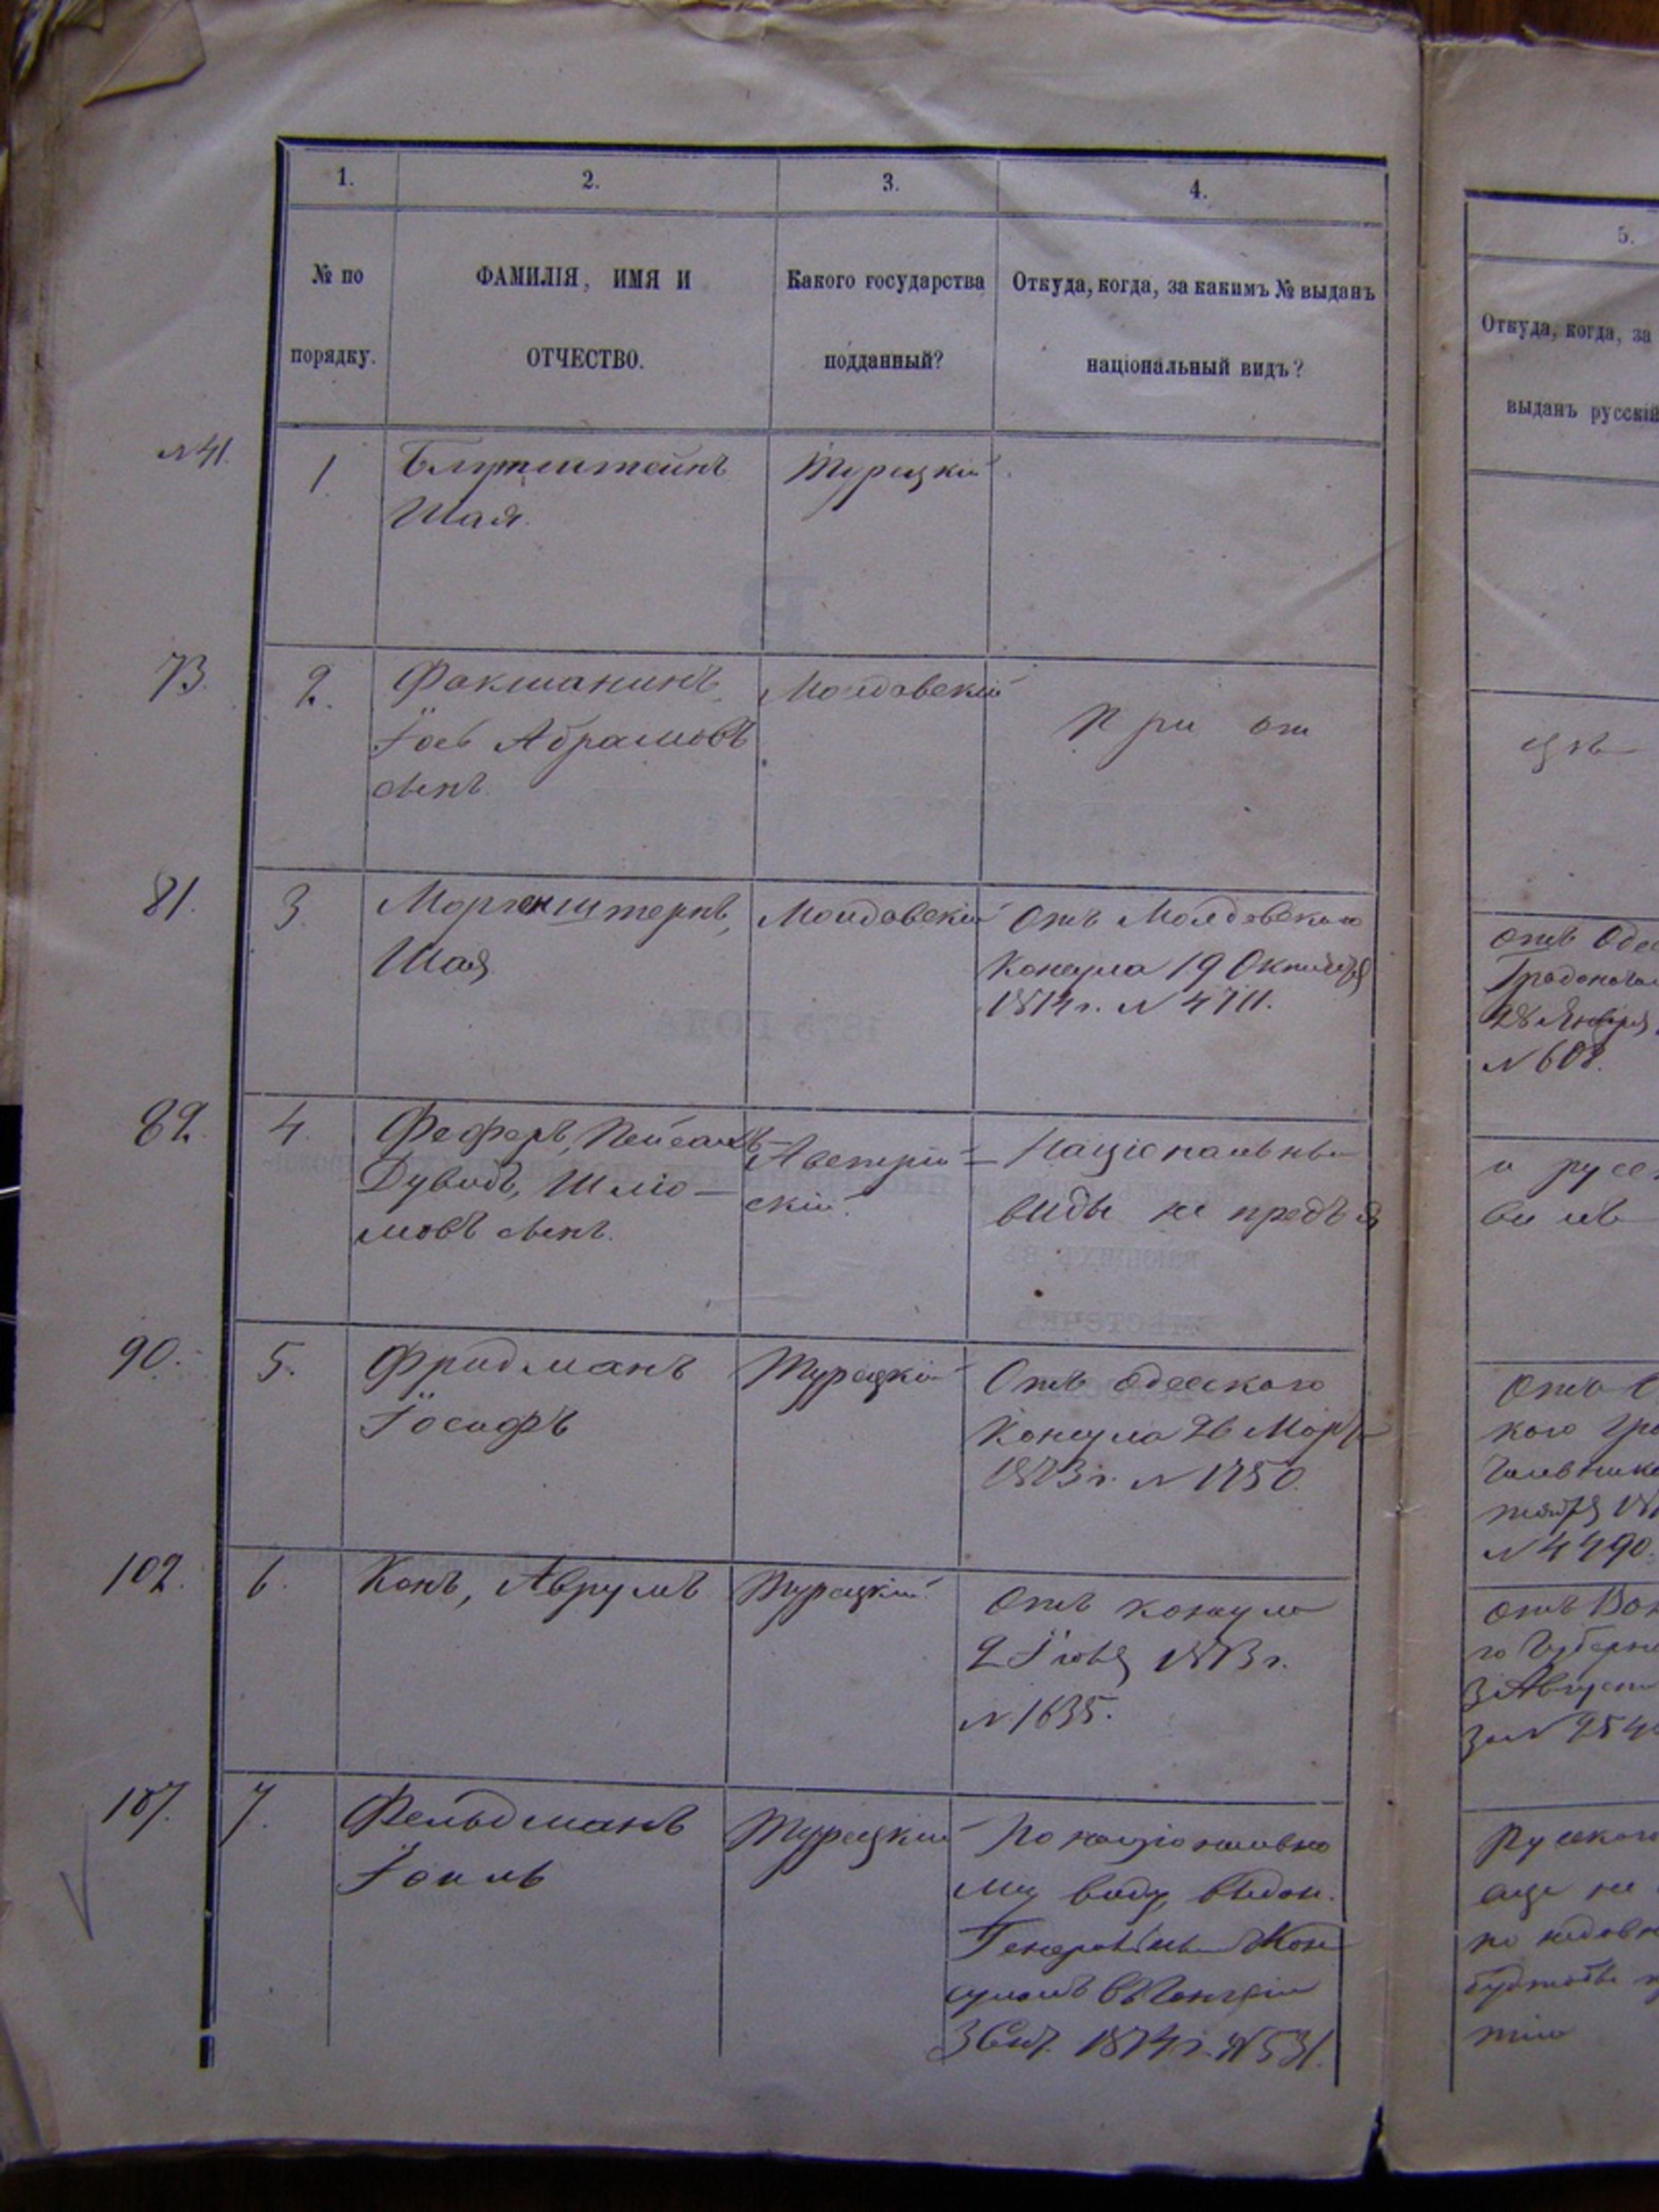 1. 2. 3. 4.
№ по порядку.
ФАМИЛІЯ, ИМЯ И
ОТЧЕСТВО.
Какого государства
подданный?
Откуда, когда, за какимъ № выданъ
національный видъ?
№ 41.
1.
Шая.
Турецкій
73.
2.
Фокшанинъ
Абрамовъ
сынъ.
Молдавскій
При от
81.
3
Моргенштернъ,
Шая
Молдавскій
Отъ Молдавскаго
Консула 19 Октября
1874 г. № 4711.
82.
4.
Феферъ, Пейсахъ-
Дувидъ, Шлiо-
мовъ сынъ.
Австрій-
скій.
Національны
виды не предъя
90.
5.
Фридманъ
Іосифъ
Турецкій
Отъ Одесскаго
Консула 26 Мар
1873 г. № 1750.
102.
6.
Конъ, Аврумъ
Турецкій
Отъ консула
2 1873 г.
№ 1635.
107.
7.
Фельдманъ
Іоиль
Турецкій
По національно
му виду, выдан.
Кон
суломъ
3 Сент. 1874 г. № 531.
5.
Откуда, когда, за
выданъ русскій
отъ Одес
Градонача
28 Января
№ 608.
и русс
Отъ О
кого Гра
№ 4490.
го Губерн
3 Августа
за № 254
Русскаго
еще не